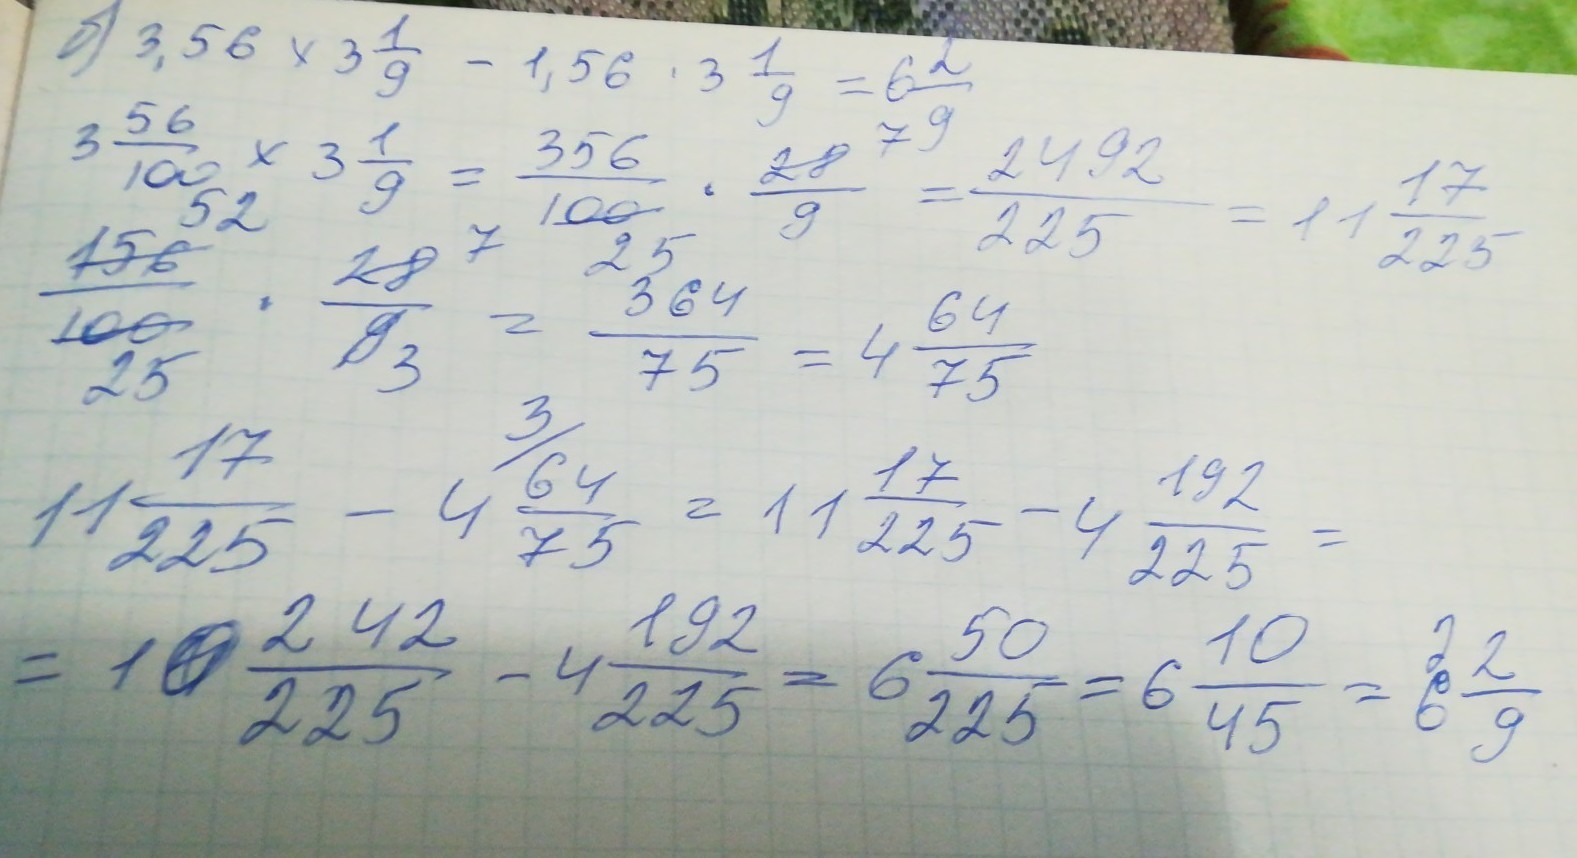 б) 3,56 × 3 1/9 - 1,56 · 3 1/9 = 6 2/9
3 56/100 × 3 1/9 = 356/100 25 · 28/9 7 = 2492/225 = 11 17/225
52 156/100 25 · 28/9 7 3 = 364/75 = 4 64/75
11 17/225 - 4 3/ 64/75 = 11 17/225 - 4 192/225 =
= 10 242/225 - 4 192/225 = 6 50/225 = 6 10/45 = 6 2/9